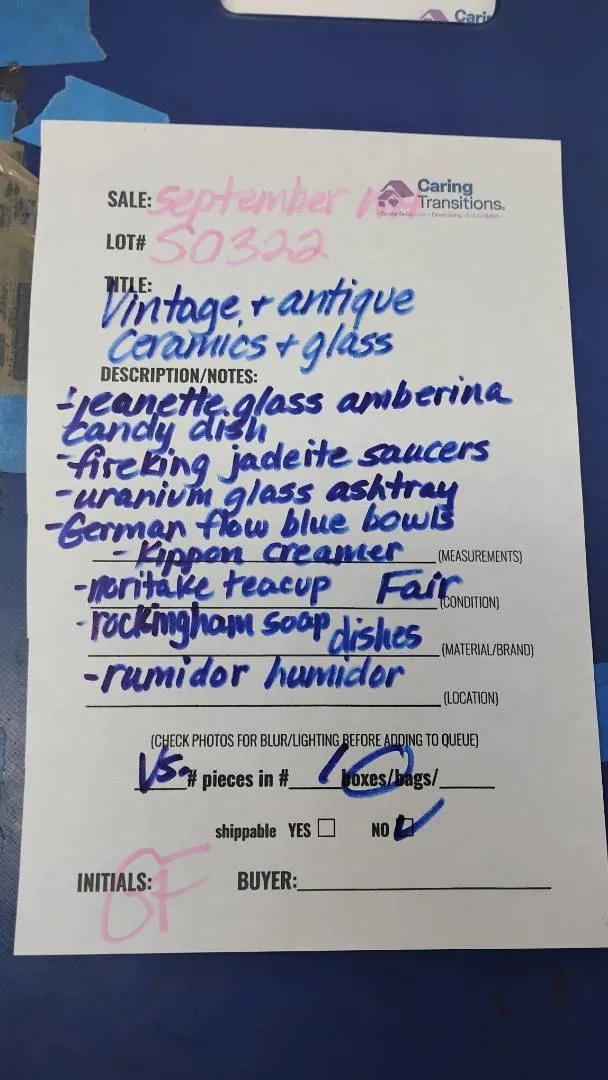 Carin
Caring
Transitions.
SALE: September
LOT# S0322
TITLE:
Vintage + antique
Ceramics + glass
DESCRIPTION/NOTES:
- jeanette glass amberina
candy dish
- fireking jadeite saucers
- uranium glass ashtray
- German flow blue bowls
- Kippon creamer (MEASUREMENTS)
- noritake teacup Fair (CONDITION)
- rockingham soap dishes (MATERIAL/BRAND)
- rumidor humidor (LOCATION)
(CHECK PHOTOS FOR BLUR/LIGHTING BEFORE ADDING TO QUEUE)
VS. # pieces in # 1 boxes/bags/
shippable YES NO
INITIALS: OF BUYER: